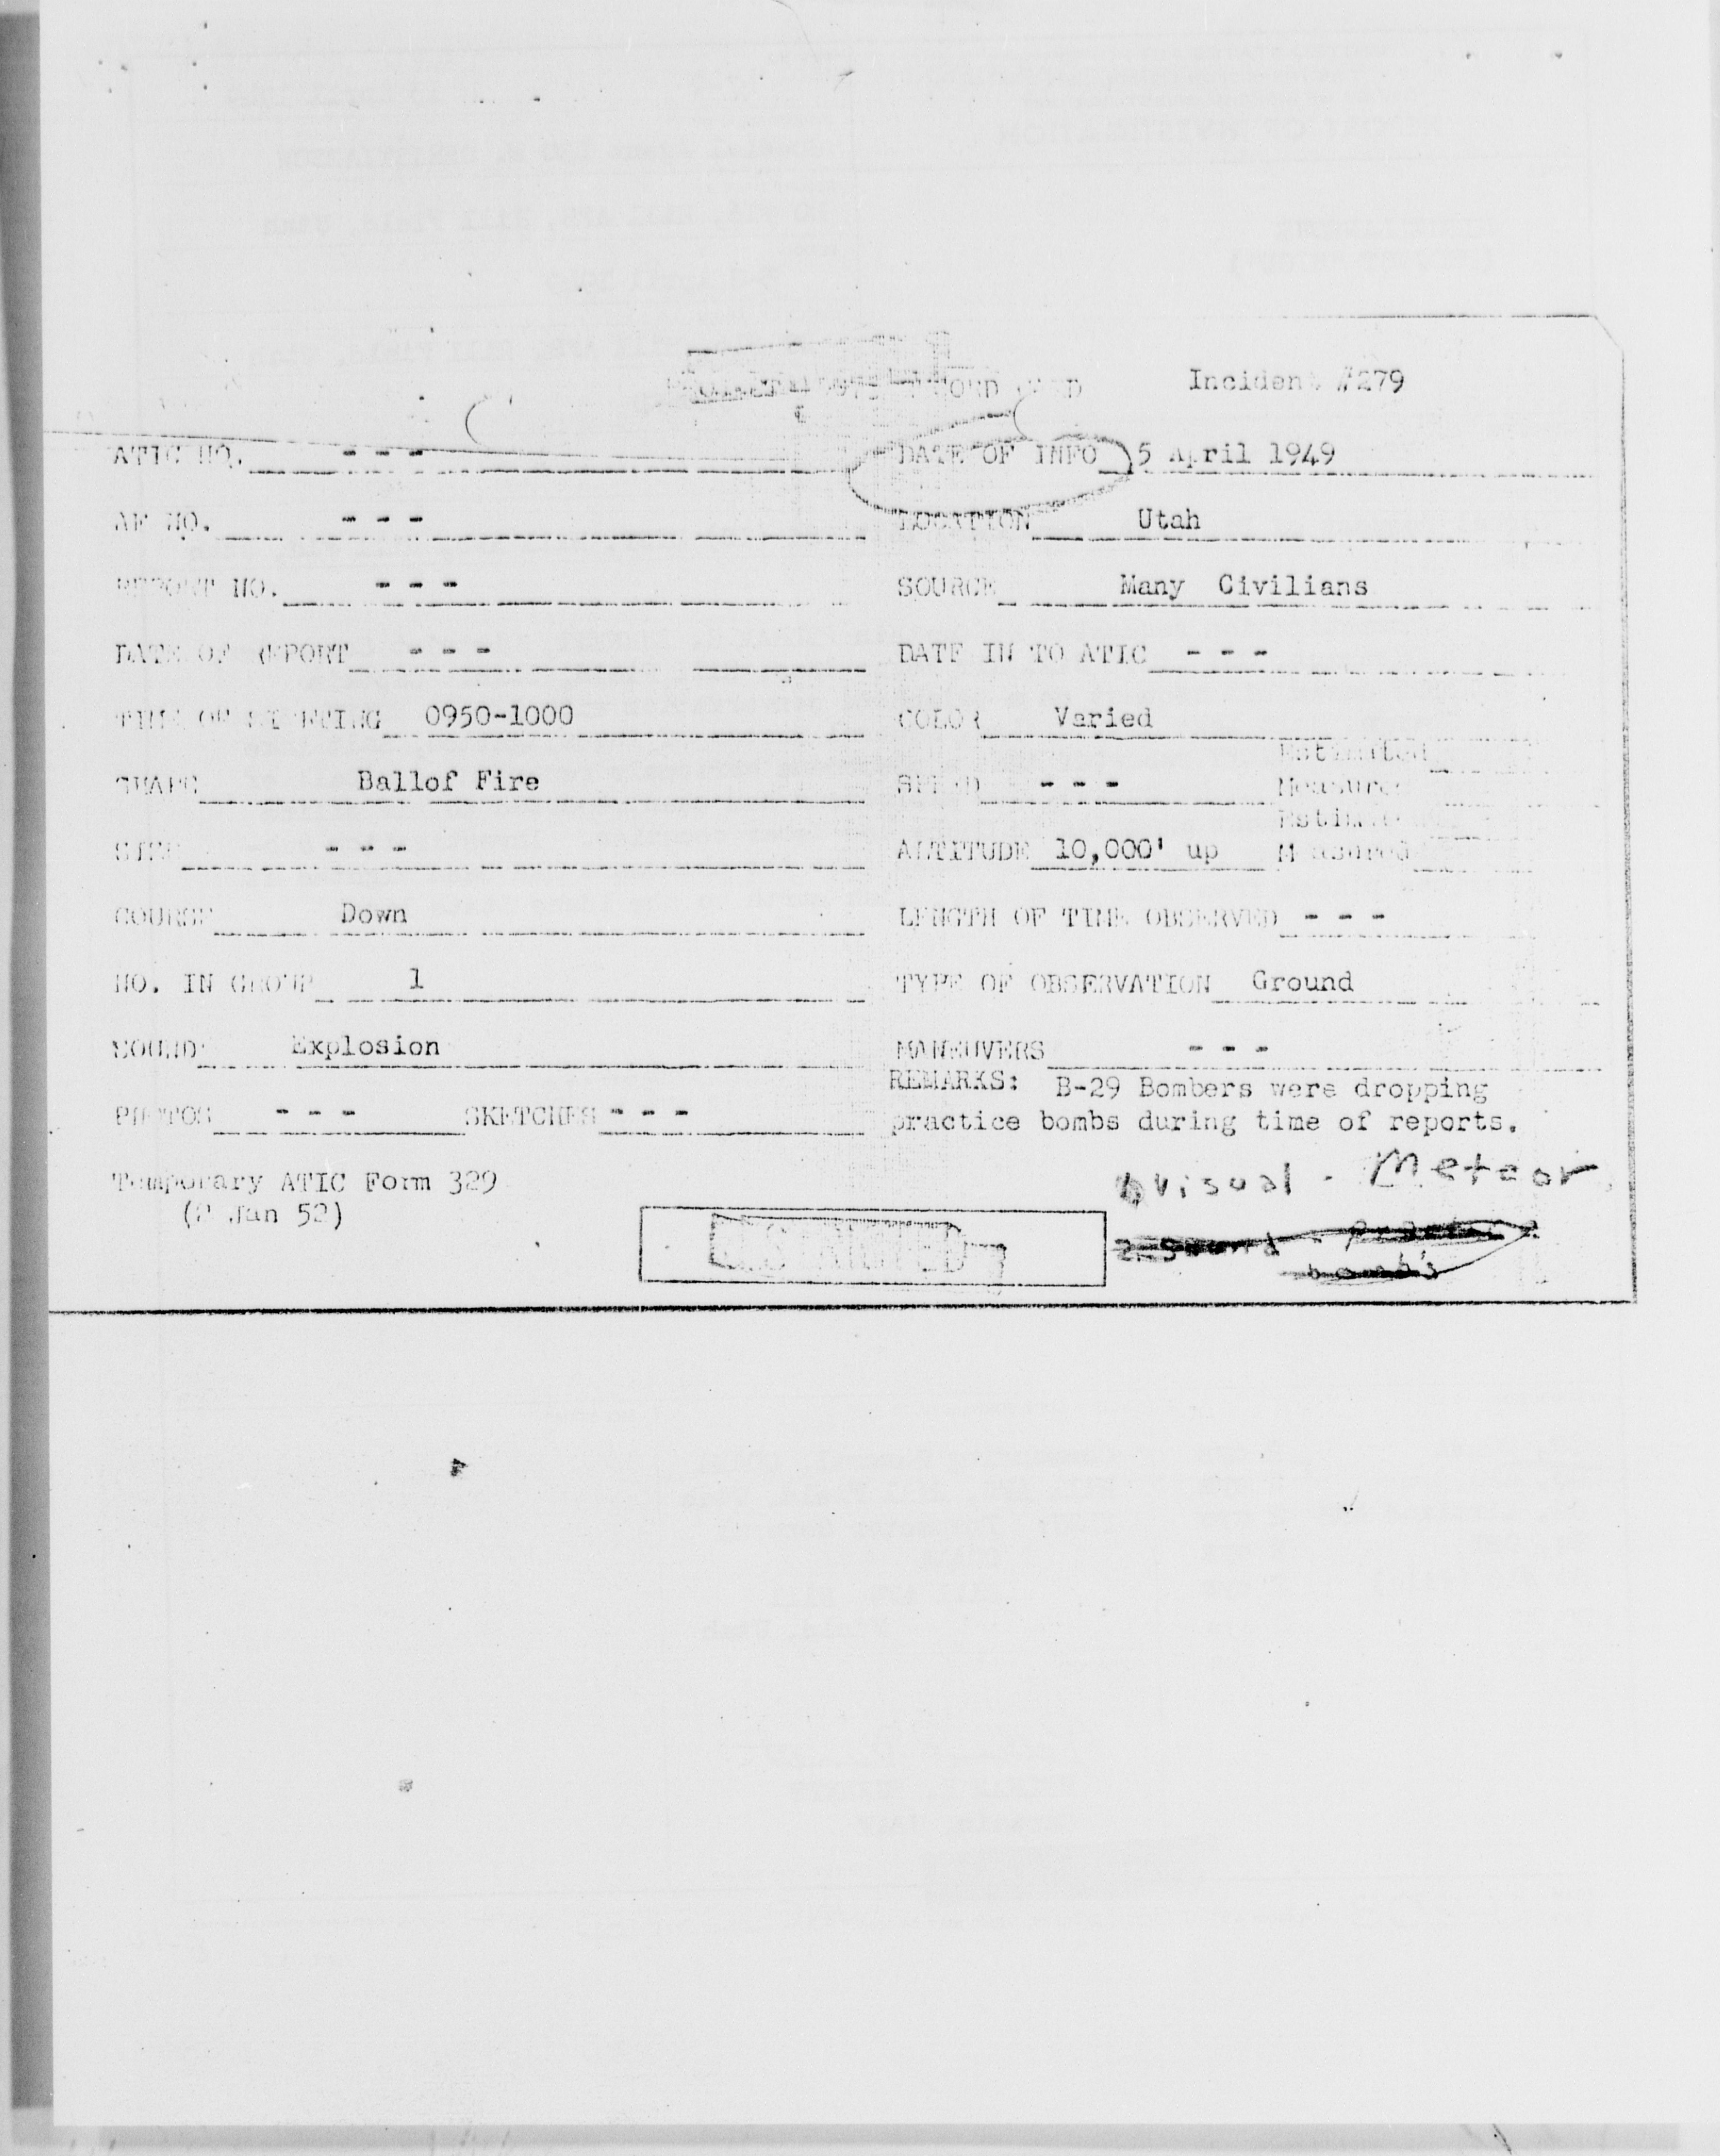 Incident #279
ATIC NO. - - -
DATE OF INFO 5 April 1949
AF NO. - - -
LOCATION Utah
REPORT NO. - - -
SOURCE Many Civilians
DATE OF REPORT - - -
DATE IN TO ATIC - - -
TIME OF SIGHTING 0950-1000
COLOR Varied
SHAPE Ballof Fire
SPEED - - - Estimated
Measured
SIZE - - -
ALTITUDE 10,000' up Estimated
Measured
COURSE Down
LENGTH OF TIME OBSERVED - - -
NO. IN GROUP 1
TYPE OF OBSERVATION Ground
SOUND Explosion
MANEUVERS - - -
PHOTOS - - - SKETCHES - - -
REMARKS: B-29 Bombers were dropping
practice bombs during time of reports.
Temporary ATIC Form 329
(2 Jan 52)
visual - Meteor